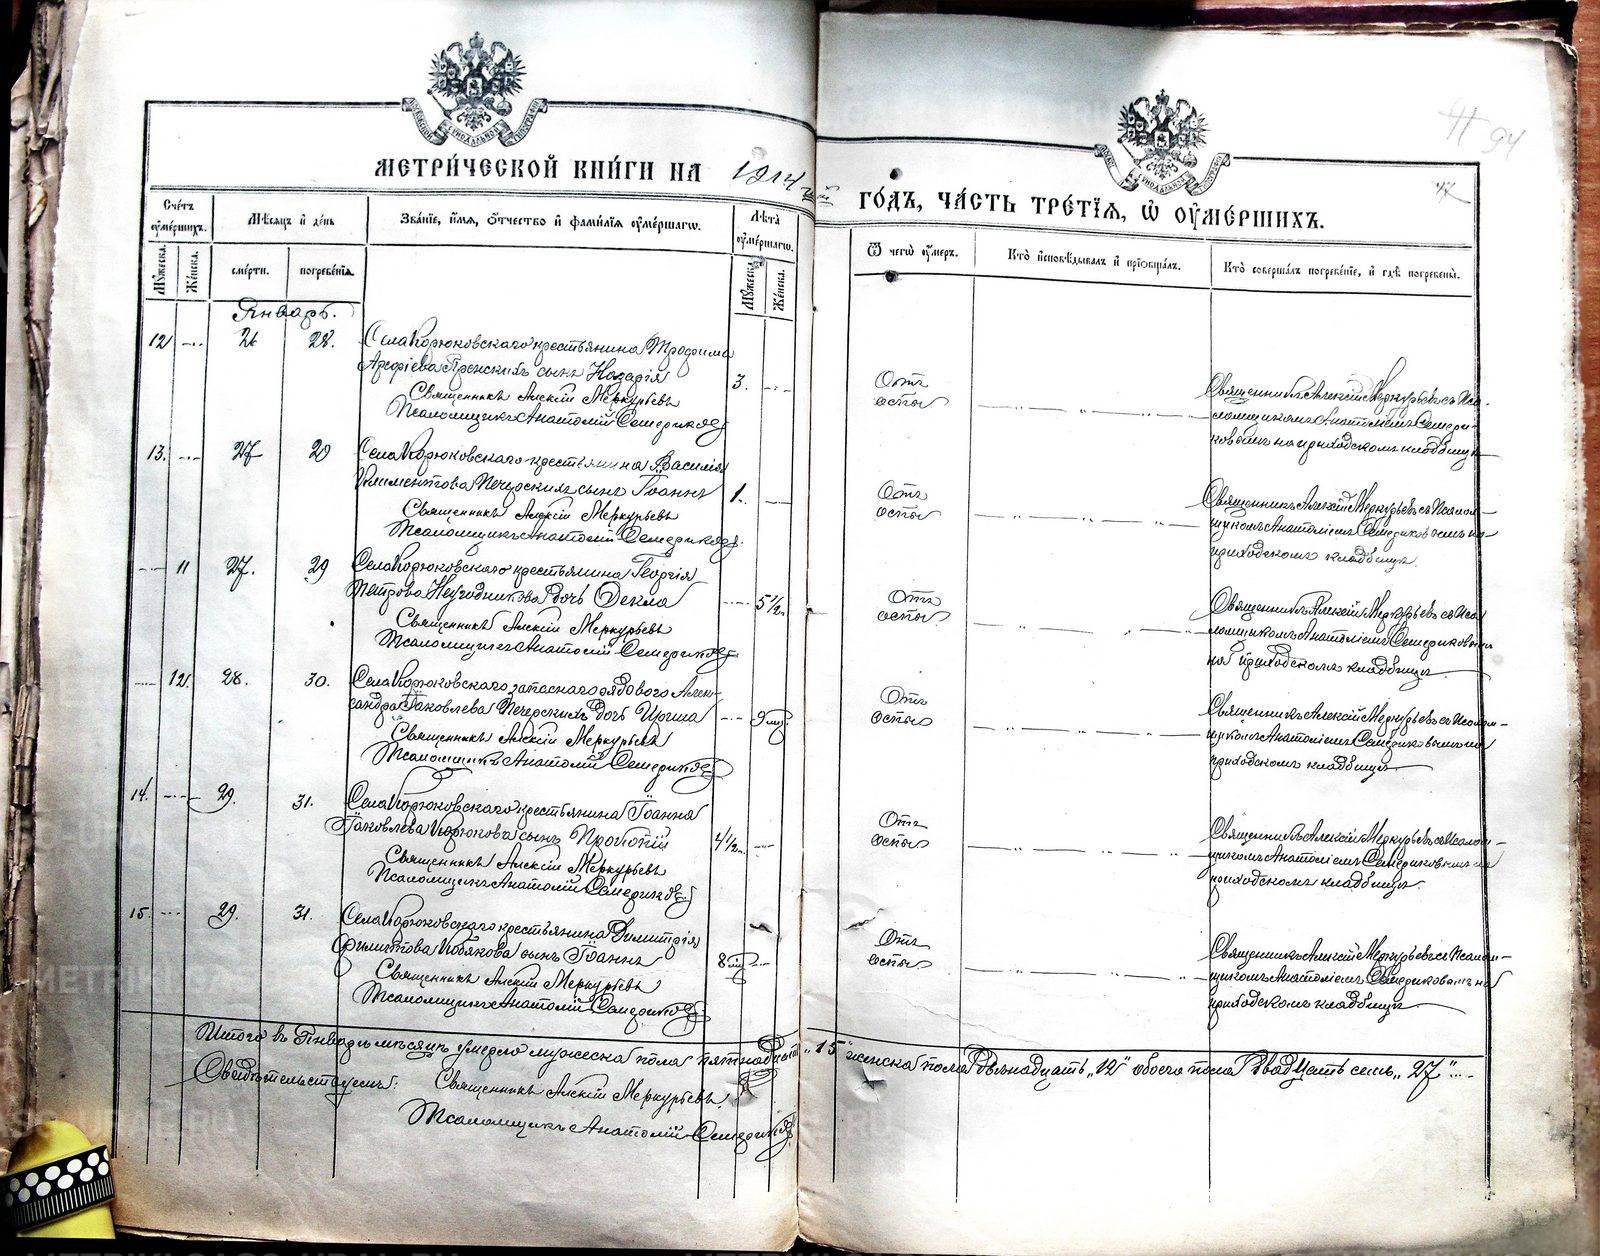 МЕТРИЧЕСКОЙ КНИГИ НА 1914 й ГОДЪ, ЧАСТЬ ТРЕТІЯ, Ѿ ОУМЕРШИХЪ.
94
Счетъ оумершихъ.
Мѣсяцъ и день
Званіе, имя, отчество и фамилія оумершагѡ.
Лѣта оумершагѡ.
Ѿ чегѡ оумеръ.
Кто исповѣдывалъ и пріобщалъ.
Кто совершалъ погребеніе, и гдѣ погребены.
Мужеска.
Женска.
смерти.
погребенія.
Мужеска.
Женска.
Январь.
12 26 28. Села Корюковскаго крестьянина Трофима
Арефіева Пенскихъ сынъ Назарія 3.
Священникъ Алексій Меркурьевъ
Псаломщикъ Анатолій Семериковъ
Отъ
оспы
Священникъ Алексій Меркурьевъ съ Пса-
ломщикомъ Анатоліемъ Семери-
ковымъ на приходскомъ кладбищѣ
13. 27 29 Села Корюковскаго крестьянина Василія
Климентова Печерскихъ сынъ Іоаннъ 1.
Священникъ Алексій Меркурьевъ
Псаломщикъ Анатолій Семериковъ
Отъ
оспы
Священникъ Алексій Меркурьевъ съ Псалом-
щикомъ Анатоліемъ Семериковымъ на
приходскомъ кладбищѣ.
11 27. 29 Села Корюковскаго крестьянина Георгія
Петрова Негодникова дочь Ѳекла 5 1/2
Священникъ Алексій Меркурьевъ
Псаломщикъ Анатолій Семериковъ
Отъ
оспы
Священникъ Алексій Меркурьевъ съ Пса-
ломщикомъ Анатоліемъ Семериковымъ
на приходскомъ кладбищѣ
12. 28. 30. Села Корюковскаго запаснаго рядового Алек-
сандра Іаковлева Печерскихъ дочь Ирина 9 м.
Священникъ Алексій Меркурьевъ
Псаломщикъ Анатолій Семериковъ
Отъ
оспы
Священникъ Алексій Меркурьевъ съ Псалом-
щикомъ Анатоліемъ Семериковымъ на
приходскомъ кладбищѣ
14. 29. 31. Села Корюковскаго крестьянина Іоанна
Іаковлева Корюкова сынъ Прокопій 4 1/2
Священникъ Алексій Меркурьевъ
Псаломщикъ Анатолій Семериковъ
Отъ
оспы
Священникъ Алексій Меркурьевъ съ Псалом-
щикомъ Анатоліемъ Семериковымъ на
приходскомъ кладбищѣ.
15. 29. 31. Села Корюковскаго крестьянина Димитрія
Филиппова Кобякова сынъ Іоаннъ 8 м.
Священникъ Алексій Меркурьевъ
Псаломщикъ Анатолій Семериковъ
Отъ
оспы
Священникъ Алексій Меркурьевъ съ Псалом-
щикомъ Анатоліемъ Семериковымъ на
приходскомъ кладбищѣ
Итого въ Январѣ мѣсяцѣ умерло мужеска пола пятнадцать „15" женска пола двѣнадцать „12" обоего пола двадцать семь „27"
Свидѣтельствуемъ: Священникъ Алексій Меркурьевъ.
Псаломщикъ Анатолій Семериковъ